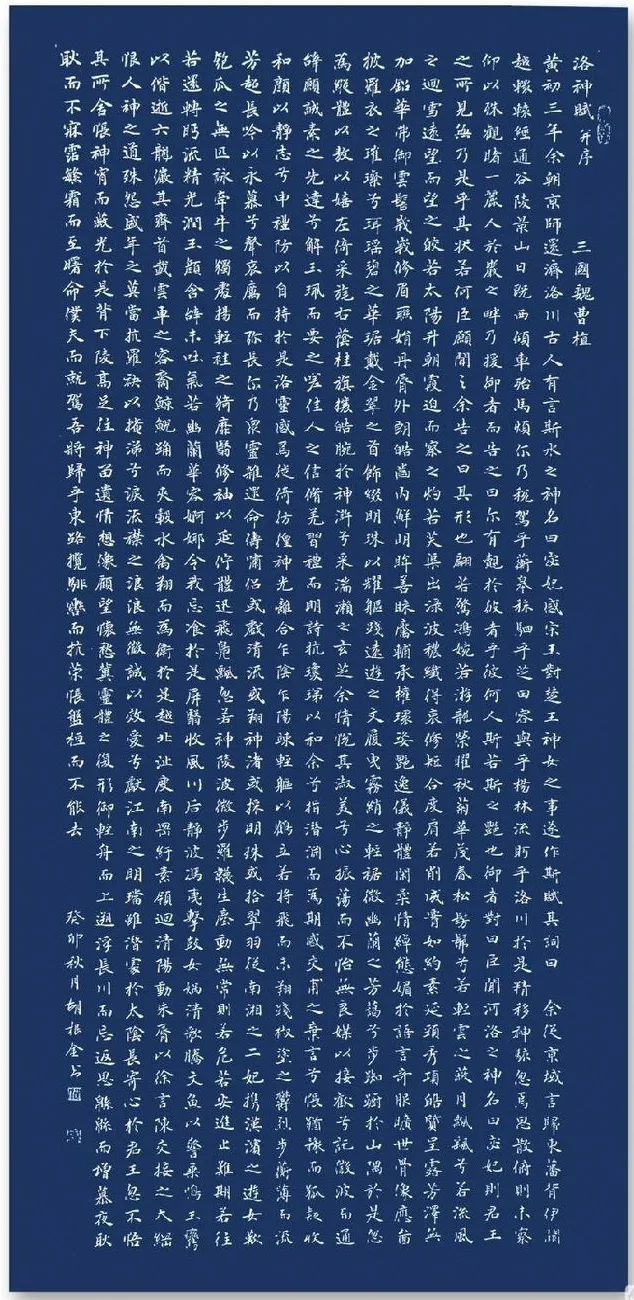 洛神賦并序 三國魏曹植
黃初三年余朝京師還濟洛川古人有言斯水之神名曰宓妃感宋玉對楚王神女之事遂作斯賦其詞曰 余從京域言歸東藩背伊闕
越轘轅經通谷陵景山日既西傾車殆馬煩尔乃稅駕乎蘅皋秣駟乎芝田容與乎楊林流眄乎洛川於是精移神駭忽焉思散俯則未察
仰以殊觀睹一麗人於巖之畔乃援御者而告之曰尔有覿於彼者乎彼何人斯若斯之艷也御者對曰臣聞河洛之神名曰宓妃則君王
之所見無乃是乎其狀若何臣願聞之余告之曰其形也翩若驚鴻婉若游龍榮曜秋菊華茂春松髣髴兮若輕雲之蔽月飄颻兮若流風
之迴雪遠望而望之皎若太陽升朝霞迫而察之灼若芙蕖出淥波穠纖得衷修短合度肩若削成腰如約素延頸秀項皓質呈露芳澤無
加鉛華弗御雲髻峩峩修眉聯娟丹脣外朗皓齒內鮮明眸善睞靨輔承權瓌姿艷逸儀靜體閑柔情綽態媚於語言奇服曠世骨像應圖
披羅衣之璀璨兮珥瑤碧之華琚戴金翠之首飾綴明珠以耀軀踐遠遊之文履曳霧綃之輕裾微幽蘭之芳藹兮步踟躕於山隅於是忽
焉縱體以敖以嬉左倚采旄右蔭桂旗攘皓腕於神滸兮采湍瀨之玄芝余情悅其淑美兮心振蕩而不怡無良媒以接歡兮託微波而通
辭願誠素之先達兮解玉珮而要之嗟佳人之信脩羌習禮而明詩抗瓊珶以和余兮指潛淵而為期感交甫之棄言兮悵猶豫而狐疑收
和顏以靜志兮申禮防以自持於是洛靈感焉徙倚彷徨神光離合乍陰乍陽竦輕軀以鶴立若將飛而未翔踐椒塗之鬱烈步蘅薄而流
芳超長吟以永慕兮聲哀厲而弥長尔乃眾靈雜還命儔嘯侶或戲清流或翔神渚或採明珠或拾翠羽從南湘之二妃攜漢濱之遊女歎
匏瓜之無匹詠牽牛之獨處揚輕袿之猗靡翳修袖以延佇體迅飛鳧飄忽若神陵波微步羅韤生塵動無常則若危若安進止難期若往
若還轉眄流精光潤玉顏含辭未吐氣若幽蘭華容婀娜令我忘飡於是屏翳收風川后靜波馮夷擊鼓女媧清歌騰文魚以警乘鳴玉鸞
以偕逝六龍儼其齊首載雲車之容裔鯨鯢踊而夾轂水禽翔而為衛於是越北沚度南岡紆素領迴清陽動朱脣以徐言陳交接之大綱
恨人神之道殊怨盛年之莫當抗羅袂以掩涕兮淚流襟之浪浪無微誠以效愛兮獻江南之明璫雖潛處於太陰長寄心於君王忽不悟
其所舍悵神宵而蔽光於是背下陵高足往神留遺情想像顧望懷愁冀靈體之復形御輕舟而上遡浮長川而忘返思綿綿而增慕夜耿
耿而不寐霑繁霜而至曙命僕夫而就駕吾將歸乎東路攬騑轡而抗策悵盤桓而不能去 癸卯秋月胡根金书